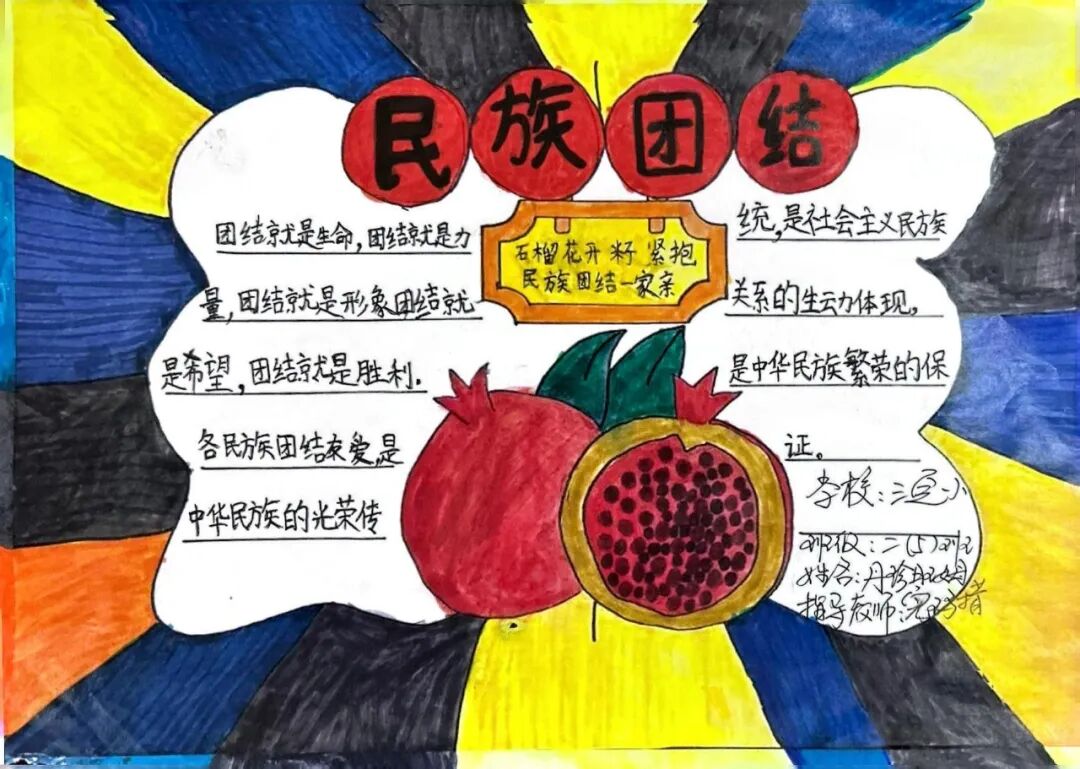 民族团结
石榴花开籽紧抱
民族团结一家亲
团结就是生命，团结就是力
量，团结就是形象团结就
是希望，团结就是胜利.
各民族团结友爱，是
中华民族的光荣传
统，是社会主义民族
关系的生动体现，
是中华民族繁荣的保
证。
学校：三完小
班级：二（5）班
姓名：丹珍
指导老师：